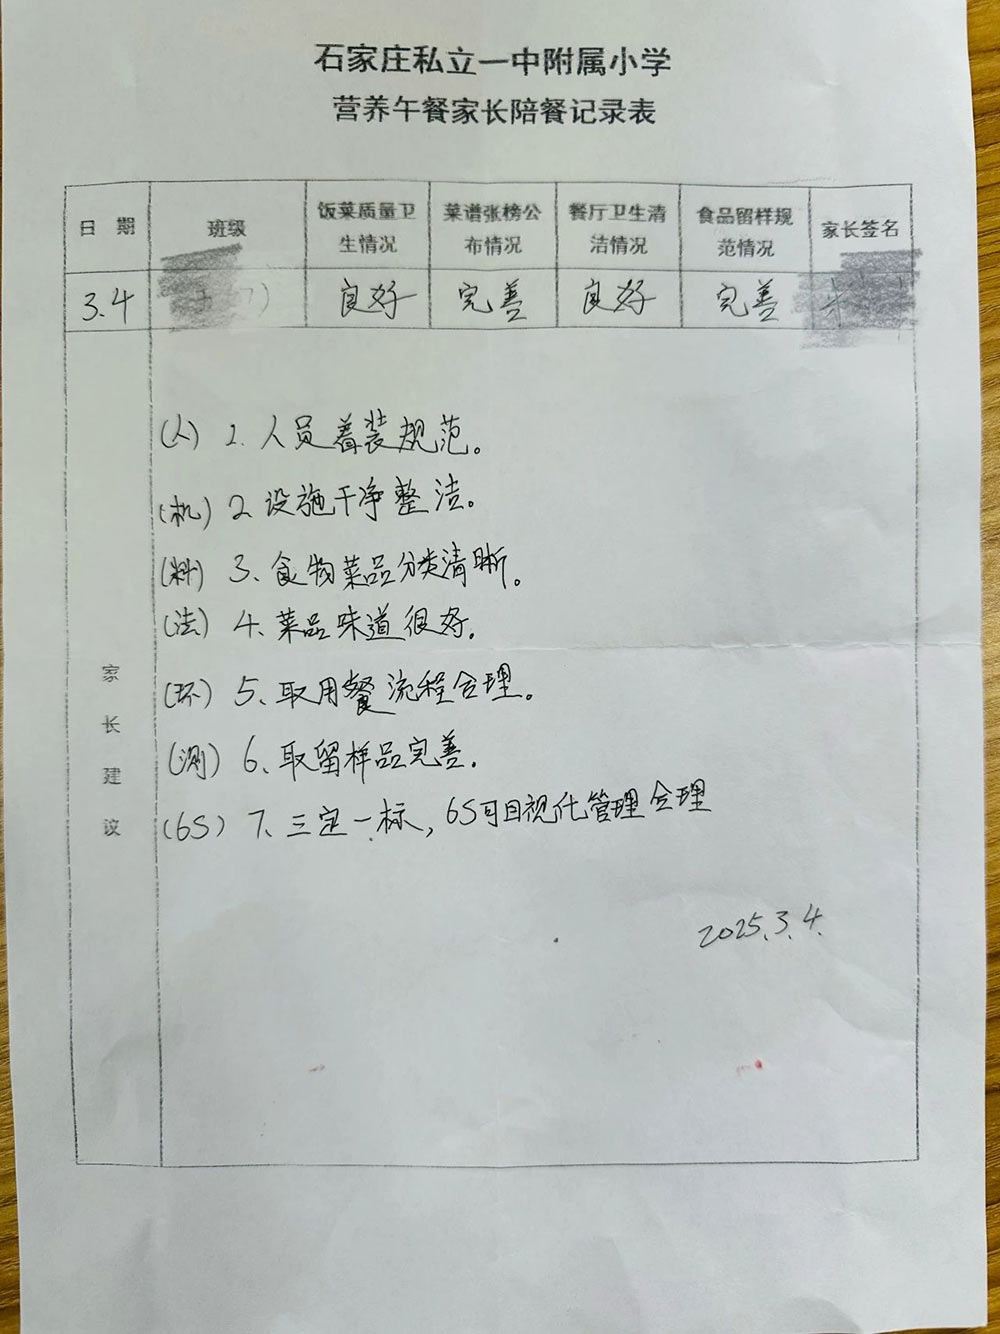 石家庄私立一中附属小学
营养午餐家长陪餐记录表
日 期 班级 饭菜质量卫生情况 菜谱张榜公布情况 餐厅卫生清洁情况 食品留样规范情况 家长签名
3.4 良好 完善 良好 完善
家长建议
(人) 1. 人员着装规范。
(机) 2. 设施干净整洁。
(料) 3、食物菜品分类清晰。
(法) 4、菜品味道很好。
(环) 5、取用餐流程合理。
(测) 6、取留样品完善.
(6S) 7、三定一标，6S可目视化管理合理
2025.3.4.